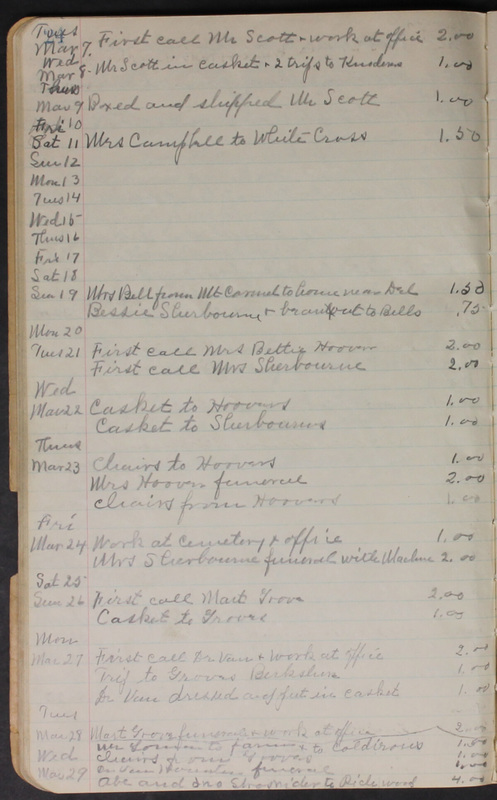 Tues
Mar 7. First call Mr Scott + work at office 2.00
Wed
Mar 8. Mr Scott in casket + 2 trips to 1.00
Thurs
Mar 9 Boxed and shipped Mr Scott 1.00
Fri 10
Sat 11 Mrs Campbell to White Cross 1.50
Sun 12
Mon 13
Tues 14
Wed 15
Thus 16
Fri 17
Sat 18
Sun 19 Mrs Bell from Mt Carmel to home near 1.50
Bessie Sherbourne + out to Bells .75
Mon 20
Tues 21 First call Mrs Bettie Hoover 2.00
First call Mrs Sherbourne 2.00
Wed
Mar 22 Casket to Hoovers 1.00
Casket to Sherbournes 1.00
Thurs
Mar 23 Chairs to Hoovers 1.00
Mrs Hoover funeral 2.00
Chairs from Hoovers 1.00
Fri
Mar 24 Work at Cemetery + office 1.00
Mrs Sherbourne funeral with Machine 2.00
Sat 25
Sun 26 First call Mart Grove 2.00
Casket to Groves 1.00
Mon
Mar 27 First call Dr Van + work at office 2.00
Trip to Groves 1.00
Dr Van dressed and put in casket 1.00
Tues
Mar 28 Mart Grove funeral + work at office 2.00
to farm + to 1.00
Wed Chairs from Groves 1.00
Mar 29 funeral
Abe and to Richwood 4.00